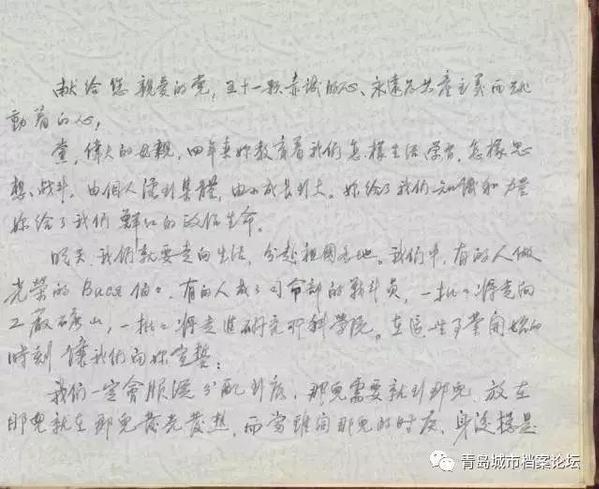 献给您 親爱的党，五十一颗赤诚的心、永遠为共產主义而跳
動着的心，
党，偉大的母親，四年来妳教育着我们怎样生活学习，怎样思
想、战斗。由個人溶到集體，由小成長到大。妳给了我们知識和力量
妳给了我们鮮红的政治生命。
明天 我们就要走向生活，分赴祖国各地。我们中，有的人做
光榮的
有的人成了司命部的戰斗員，一批々将走向
工廠礦山，一批々将走進研究所科学院。在這
開始的
時刻 讓我们向妳宣誓：
我们一定會服從分配到底，那兒需要就到那兒，放在
那兒就在那兒發光發热，而當離開那兒的时候，身边總是
青岛城市档案论坛